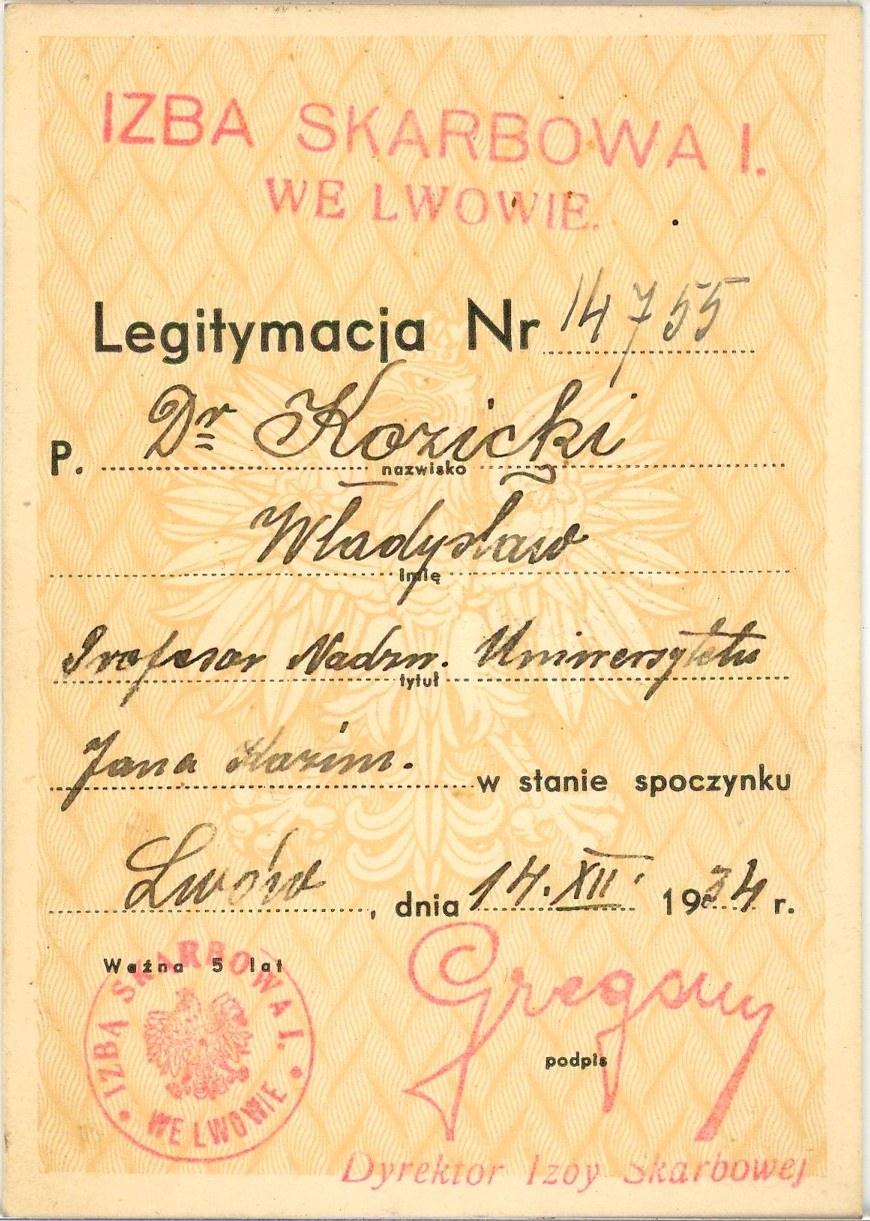 IZBA SKARBOWA I.
WE LWOWIE.
Legitymacja Nr 14755
P. Dr Kozicki
nazwisko
Władysław
imię
Profesor Nadzw. Uniwersytetu
tytuł
Jana Kazim. w stanie spoczynku
Lwów, dnia 14. XII. 1934 r.
Ważna 5 lat
IZBA SKARBOWA I.
WE LWOWIE
podpis
Dyrektor Izby Skarbowej